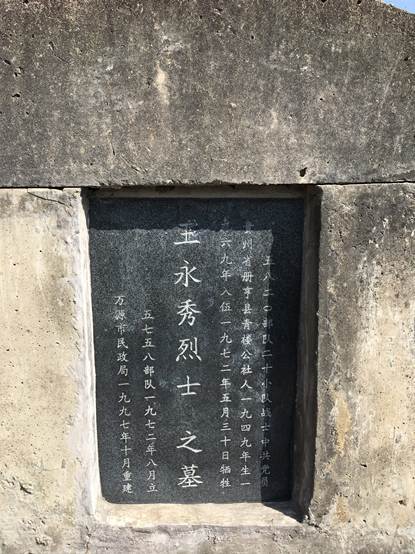 五八二〇部队二十小队战士中共党员
贵州省册亨县青楼公社人一九四九年生一
九六九年入伍一九七二年五月三十日牺牲
王永秀烈士之墓
五七五八部队一九七二年八月立
万源市民政局一九九七年十月重建